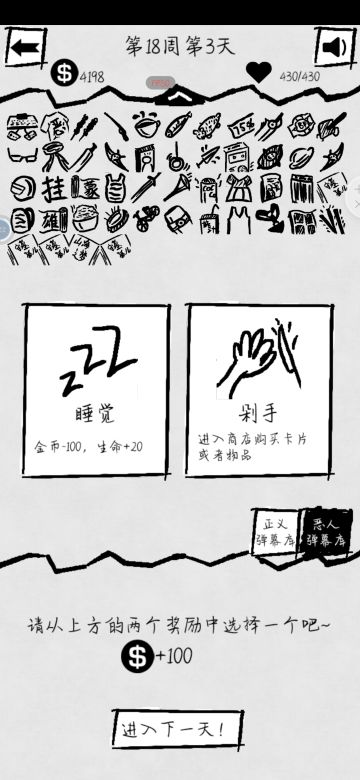 第18周第3天
4198
430/430
75折
挂
雄
睡觉
金币-100，生命+20
剁手
进入商店购买卡片
或者物品
正义
弹幕库
恶人
弹幕库
请从上方的两个奖励中选择一个吧~
+100
进入下一天！